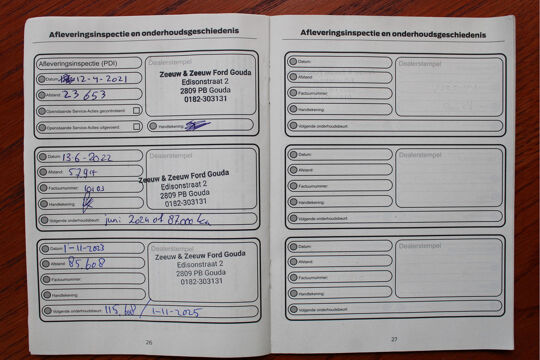 Afleveringsinspectie en onderhoudsgeschiedenis
Afleveringsinspectie (PDI)
Datum: 12-4-2021
Afstand: 23653
Openstaande Service-Acties gecontroleerd:
Openstaande Service-Acties uitgevoerd:
Dealerstempel
Zeeuw & Zeeuw Ford Gouda
Edisonstraat 2
2809 PB Gouda
0182-303131
Handtekening:
Datum: 13-6-2022
Afstand: 57914
Factuurnummer:
Handtekening:
Dealerstempel
Zeeuw & Zeeuw Ford Gouda
Edisonstraat 2
2809 PB Gouda
0182-303131
Volgende onderhoudsbeurt: juni 2024 of 87.000 km
Datum: 1-11-2023
Afstand: 85.608
Factuurnummer:
Handtekening:
Dealerstempel
Zeeuw & Zeeuw Ford Gouda
Edisonstraat 2
2809 PB Gouda
0182-303131
Volgende onderhoudsbeurt: 115.608 / 1-11-2025
26
Afleveringsinspectie en onderhoudsgeschiedenis
Datum:
Afstand:
Factuurnummer:
Handtekening:
Dealerstempel
Volgende onderhoudsbeurt:
Datum:
Afstand:
Factuurnummer:
Handtekening:
Dealerstempel
Volgende onderhoudsbeurt:
Datum:
Afstand:
Factuurnummer:
Handtekening:
Dealerstempel
Volgende onderhoudsbeurt:
27